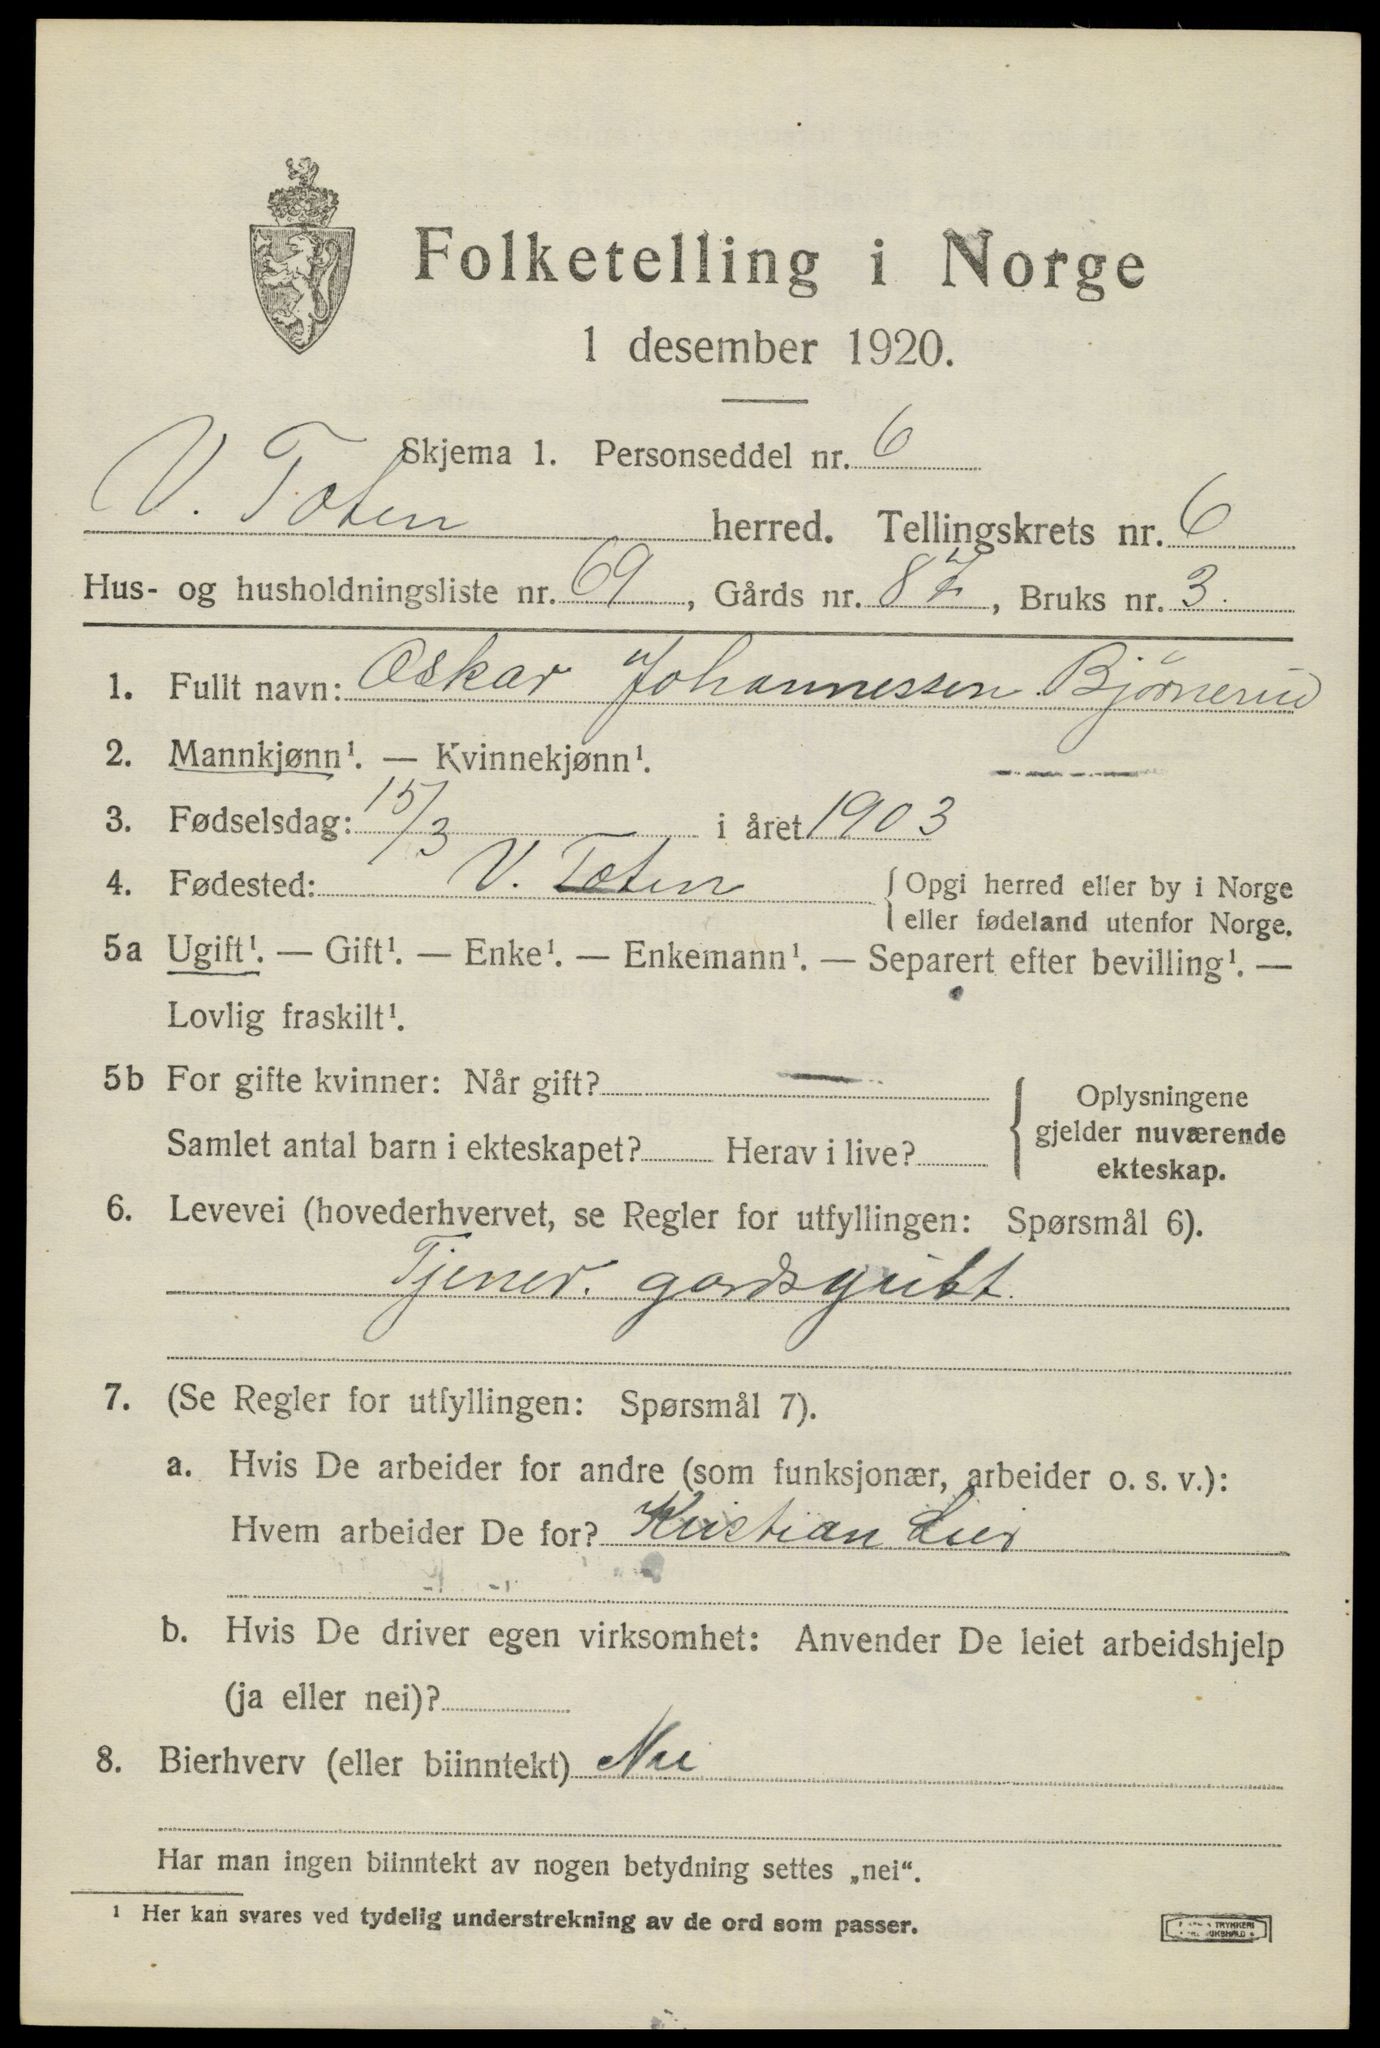 Folketelling i Norge
1 desember 1920.
Skjema 1. Personseddel nr. 6
V. Toten herred. Tellingskrets nr. 6
Hus- og husholdningsliste nr. 69, Gårds nr. 87, Bruks nr. 3.
1. Fullt navn: Oskar Johannessen Bjørnerud
2. Mannkjønn¹. — Kvinnekjønn¹.
3. Fødselsdag: 15/3 i året 1903
4. Fødested: V. Toten {Opgi herred eller by i Norge
eller fødeland utenfor Norge.
5a Ugift¹. — Gift¹. — Enke¹. — Enkemann¹. — Separert efter bevilling¹. —
Lovlig fraskilt¹.
5b For gifte kvinner: Når gift? —
Samlet antal barn i ekteskapet? Herav i live?
Oplysningene
gjelder nuværende
ekteskap.
6. Levevei (hovederhvervet, se Regler for utfyllingen: Spørsmål 6).
Tjener. gardsgutt.
7. (Se Regler for utfyllingen: Spørsmål 7).
a. Hvis De arbeider for andre (som funksjonær, arbeider o. s. v.):
Hvem arbeider De for? Kristian Lier
b. Hvis De driver egen virksomhet: Anvender De leiet arbeidshjelp
(ja eller nei)?
8. Bierhverv (eller biinntekt) Nei
Har man ingen biinntekt av nogen betydning settes „nei“.
¹ Her kan svares ved tydelig understrekning av de ord som passer.